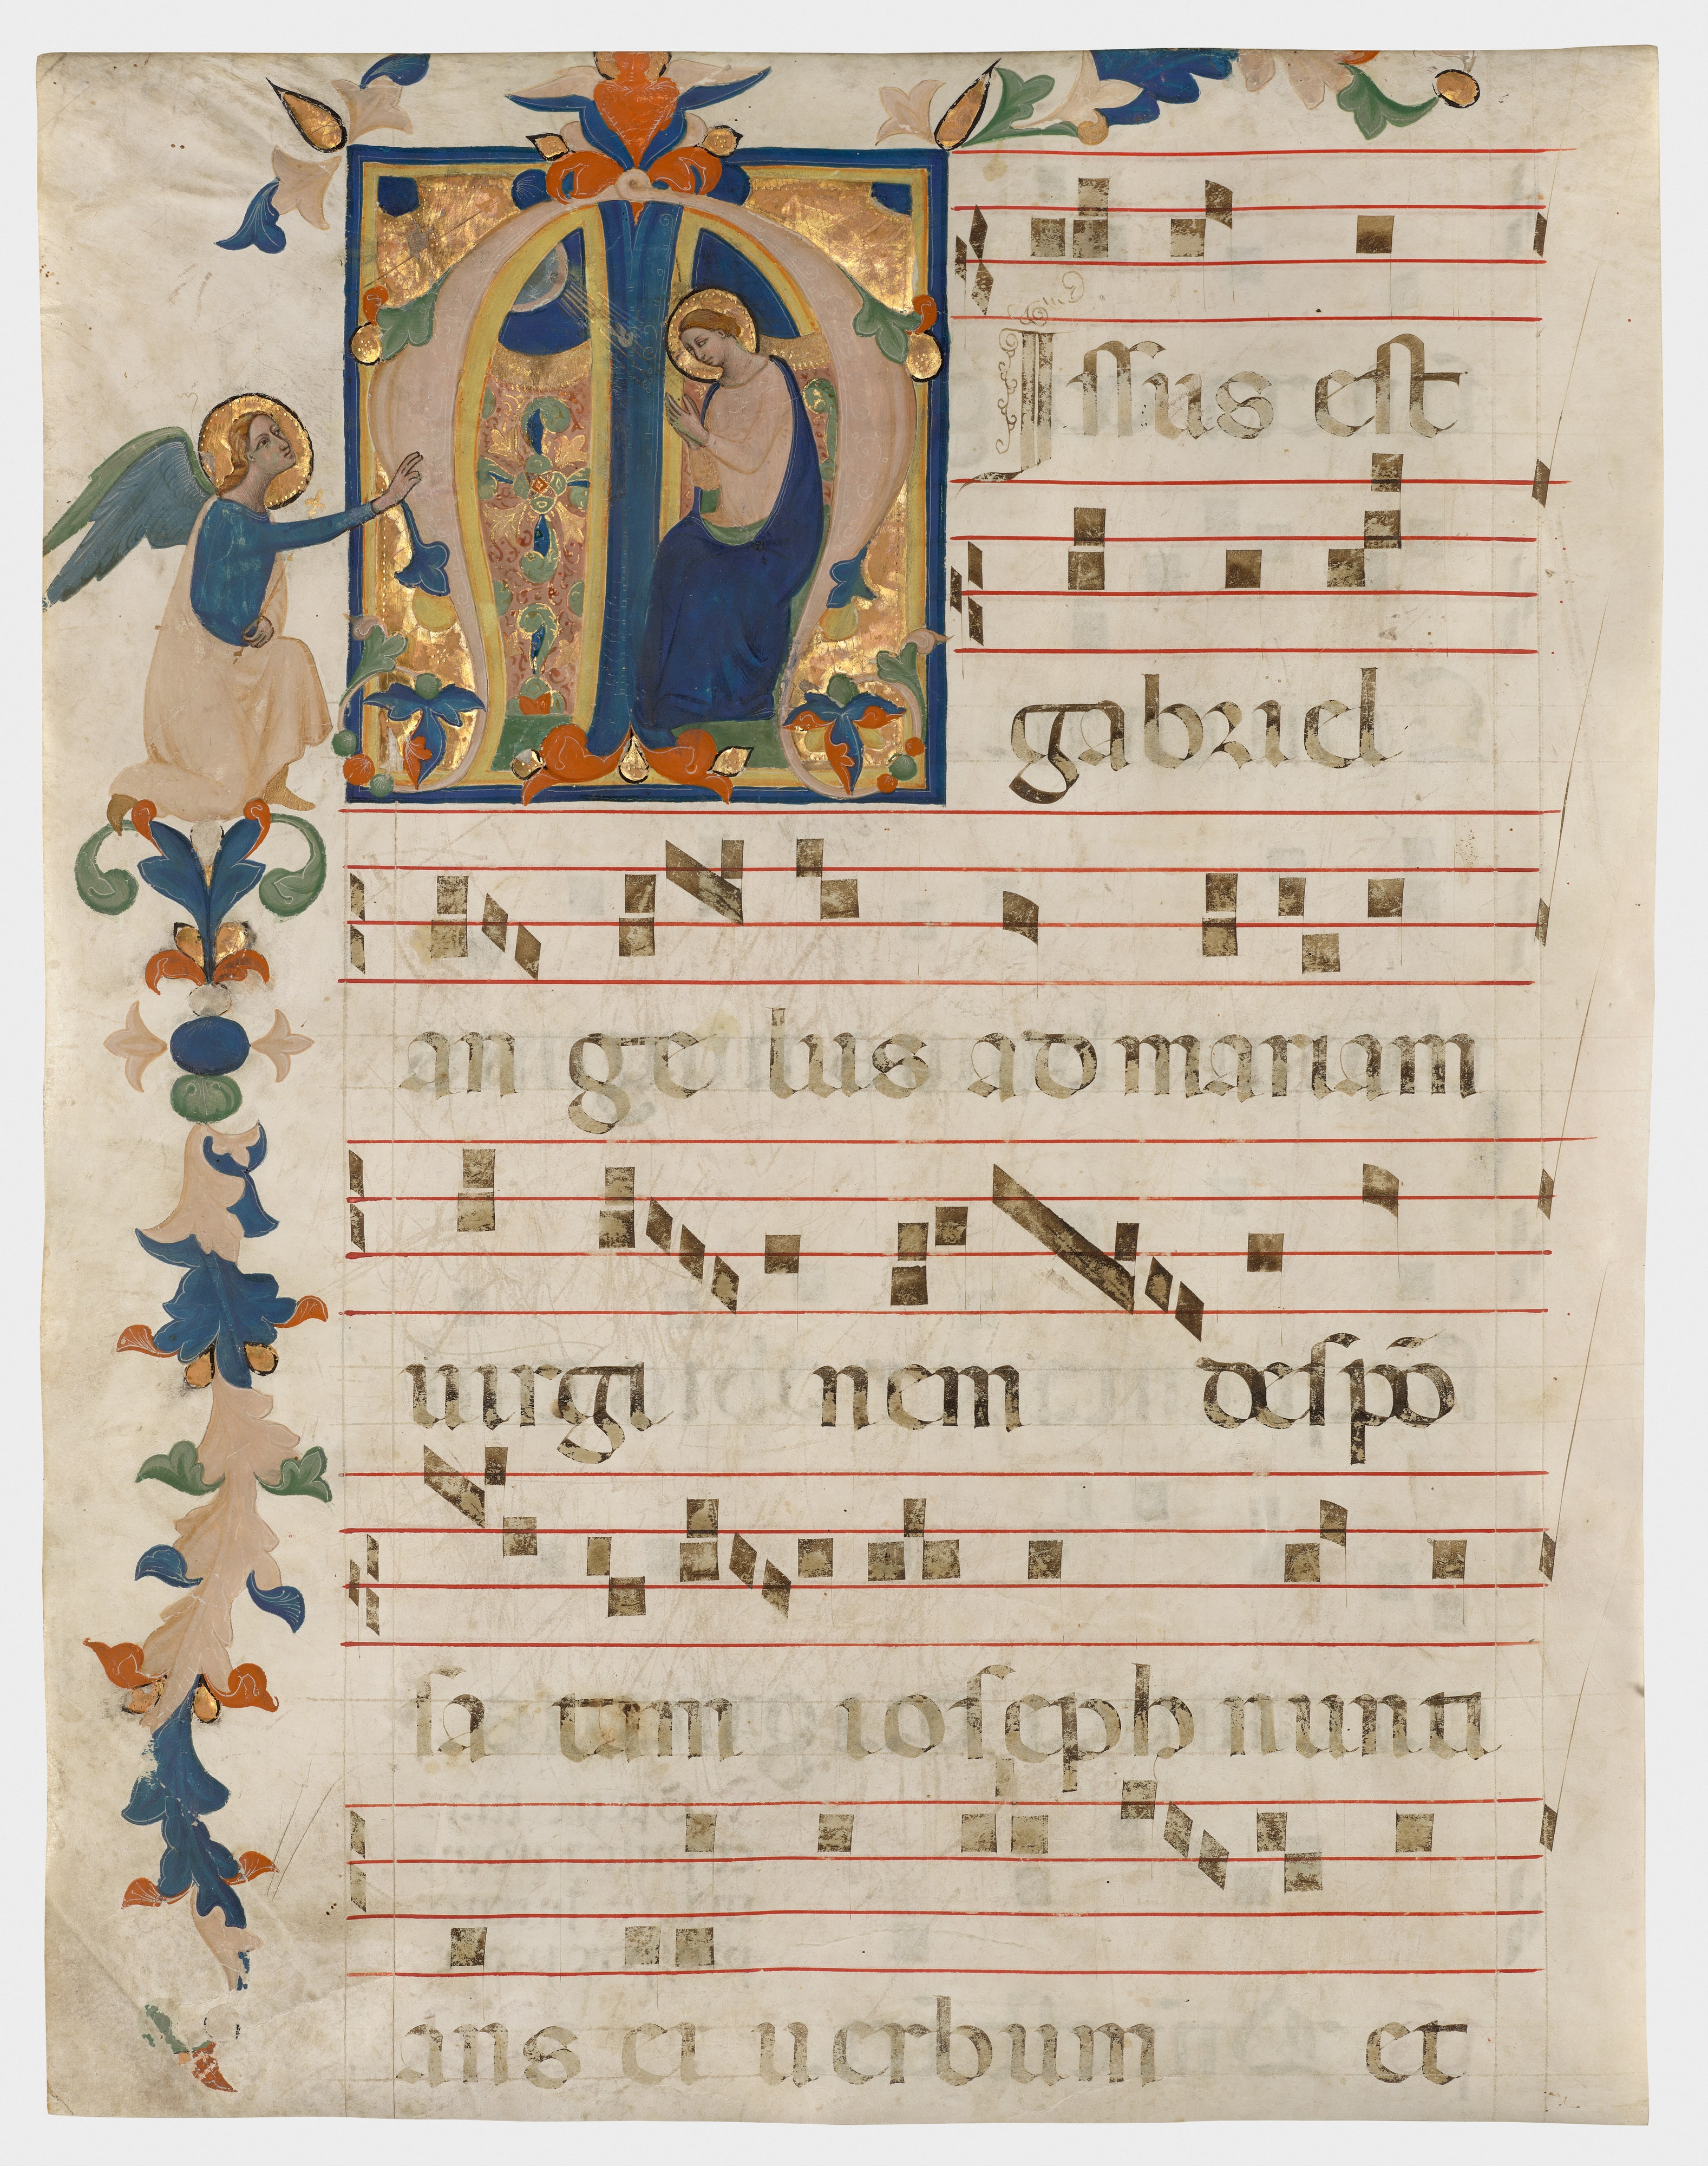 MIssus est
gabriel
an ge lus ad mariam
uirgi nem despō
sa tam ioseph nunti
ans ei uerbum et